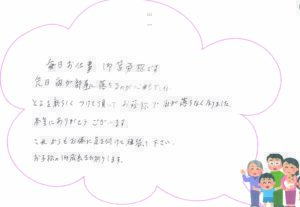 毎日お仕事 御苦労様です
先日 雨が部屋に落ちるのが心配でした
とよを新しくつけて頂いて お陰様で 雨が落ちなくなりました
本当にありがとうございます。
これからもお体に気を付けて頑張って下さい。
お子様の御成長をお祈りします。